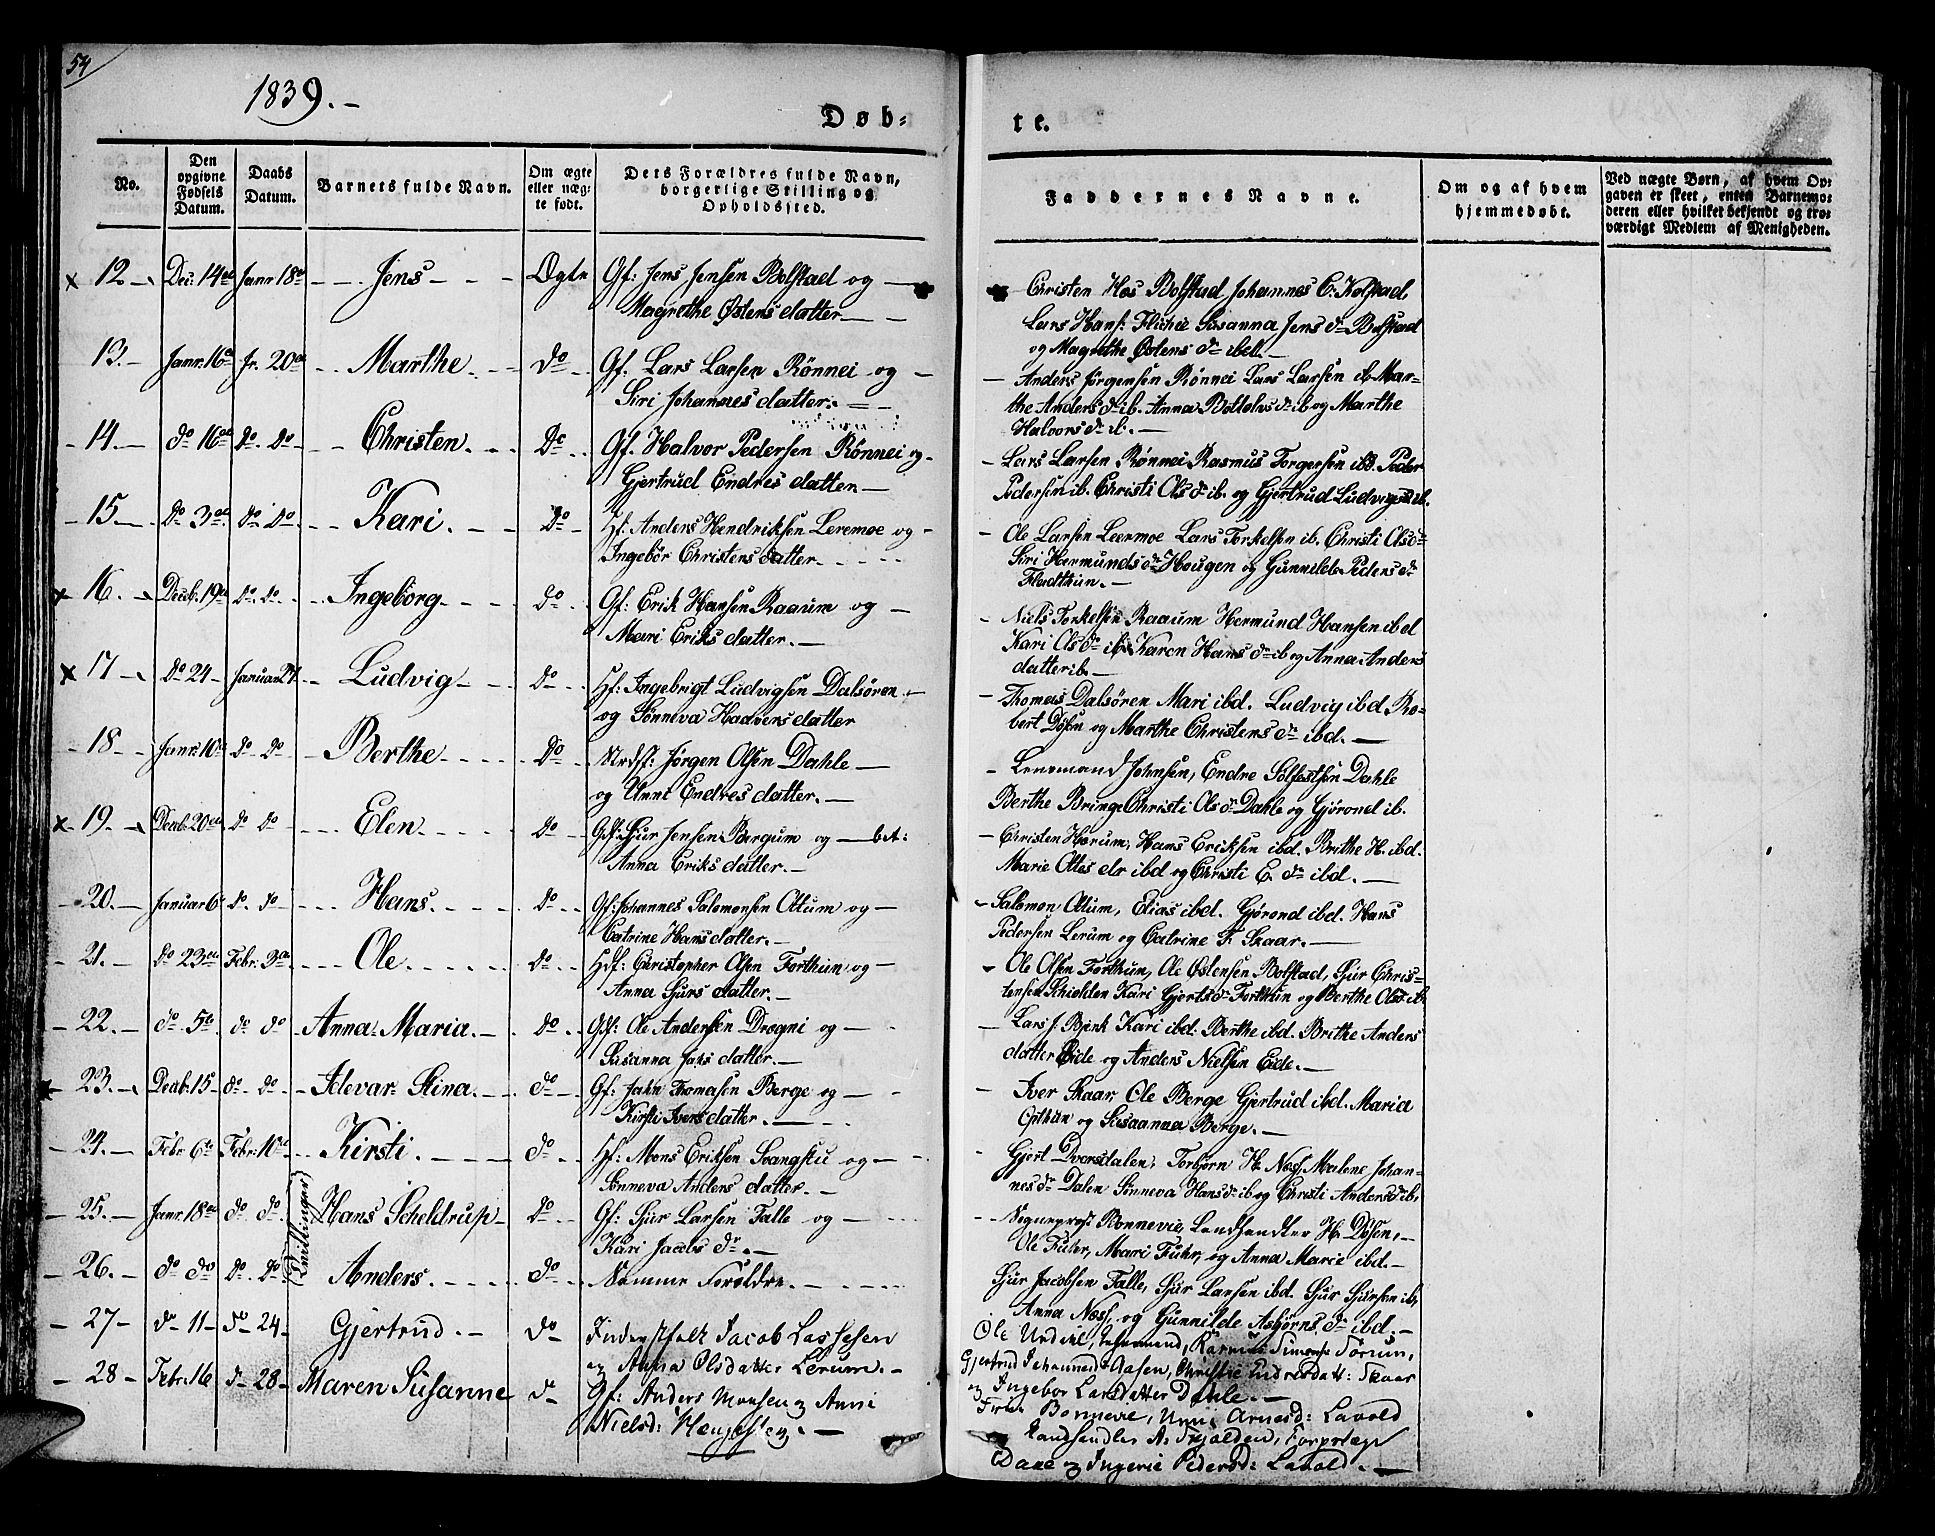 54
1839.-
Døb-
te.
No.
Den opgivne Fødsels Datum.
Daabs Datum.
Barnets fulde Navn.
Om ægte eller næg-te født.
Dets Forældres fulde Navn, borgerlige Stilling og Opholdssted.
Faddernes Navne.
Om og af hvem hjemmedøbt.
Ved nægte Børn, af hvem Op-gaven er skeet, enten Barnemo-deren eller hvilket bekjendt og tro-værdigt Medlem af Menigheden.
x 12 Dec: 14de Janr 18de Jens Ægte Gf: Jens Jensen Bolstad og
Magrethe Østensdatter
Christen Hes Bolstad Johannes C. Kolstad,
Lars Hans: Susanna Jens dr Bolstad
og Magrethe Østens dr ibd.
13. Janr: 16de Jr. 20de Marthe do Gf. Lars Larsen Rønnei og
Siri Johannesdatter.
Anders Jørgensen Rønnei Lars Larsen ib. Mar-
the Anders dr ib. Anna Bottolvs dr ib og Marthe
Halvors dr ib.
14. do 16de do. do Christen. Do Gf. Halvor Pedersen Rønnei og
Gjertrud Endresdatter
Lars Larsen Rønnei Rasmus Torgersen ibd. Peder
Pedersen ib. Christi Ols dr ib. og Gjertrud Ludvigsd ib.
15 do 3de do do Kari. do Hf: Anders Hendriksen Leremoe og
Ingebør Christensdatter.
Ole Larsen Leermoe Lars Torkelsen ib. Christi Olsdr
Siri Hermunds dr Hougen og Gunnilde Peders dr
Fladthun.
x 16. Decb. 19de do. do. Ingebørg do Gf: Erik Hansen Raaum og
Mari Eriksdatter.
Niels Torkelsen Raaum Hermund Hansen ibd
Kari Ols dr ib. Karen Hans dr ib og Anna Anders
datter ib.
x 17 do 24 Januar 27 Ludvig do Hf: Ingebrigt Ludvigsen Dalsøren
og Sønneva Haaversdatter
Thomas Dalsøren Mari ibd. Ludvig ibd. Ro-
bert Døsen og Marthe Christens dr ibd.
18 Janr: 10de do do Berthe do Jørgen Olsen Dahle
og Unni Endresdatter.
Lensmand Johnsen, Endre Solfestsen Dahle
Berthe Bringe Christi Ols dr Dahle og Gjørond ib.
x 19. Decb. 20de do do Elen. do Sjur Jensen Bergum og
Anna Eriksdatter.
Christen Hærum, Hans Eriksen ibd. Brithe H. ibd.
Marie Ottes dr ibd og Christi E. dr ibd.
20. Januar 6te do. do Hans. do Gf: Johannes Salomonsen Ottum og
Catrine Hansdatter.
Salomon Ottum, Elias ibd. Gjørond ibd. Hans
Pedersen Lerum og Catrine F. Skaar.
21. do 23de Febr: 3de Ole do Hdf: Christopher Olsen Forthun og
Anna Sjursdatter.
Ole Olsen Forthun, Ole Østensen Bolstad, Sjur Chris-
tensen Schielden Kari Gjertsdr Forthun og Berthe Olsd ib
22. do 5te do do Anna Maria. do Ole Andersen Drægni og
Susanna datter.
Lars J. Bjørk Kari ibd: Berthe ibd. Brithe Anders
datter Eide og Anders Nielsen Eide.
23. Decb. 15 do do Stina. do Gf: John Thomasen Berge og
Kirsti Iversdatter.
Iver Skaar Ole Berge Gjertrud ibd. Maria
Opthun og Susanna Berge.
24. Febr 6te Febr: 10de Kirsti. do Hf: Mons Eriksen Svangstu og
Sønneva Andersdatter.
Gjert Dvorsdalen, Torbjørn H. Næss Malene Johan-
nes dr Dalen Sønneva Hans dr ib og Christi Andersd ib.
25. Janr. 18de do do. (Tvillinger) Hans Scheldrup do Gf: Sjur Larsen Falle og
Kari Jacobs dr.
Sogneprest Bonnevie, Landhandler H. Døsen,
Ole Fuhr, Mari Fuhr, og Anna Marie ibd.
26. do do do. do Anders. do Samme Foreldre.
Sjur Jacobsen Falle, Sjur Larsen ibd. Sjur Sjursen ib,
Anna Næss og Gunnilde Asbjørns dr ibd.
27 do 11 do 24 Gjertrud. do Inderstfolk Jacob Lassesen
og Anna Olsdatter Lerum.
Ole Urdvil, Rasmus Simonsen Sørum,
Gjertrud Johannesd Aasen, Christie Endresdatt: Skaar
og Ingebor Larsdatter Dahle.
28 Febr. 16 do 28 Maren Susanne do Gf: Anders Monsen og Anni
Nielsd:
Bonnevie, Unni Arnesd: Lavold
Landhandler A. Fjælden,
Dane og Ingerie Pedersd: Lavold.